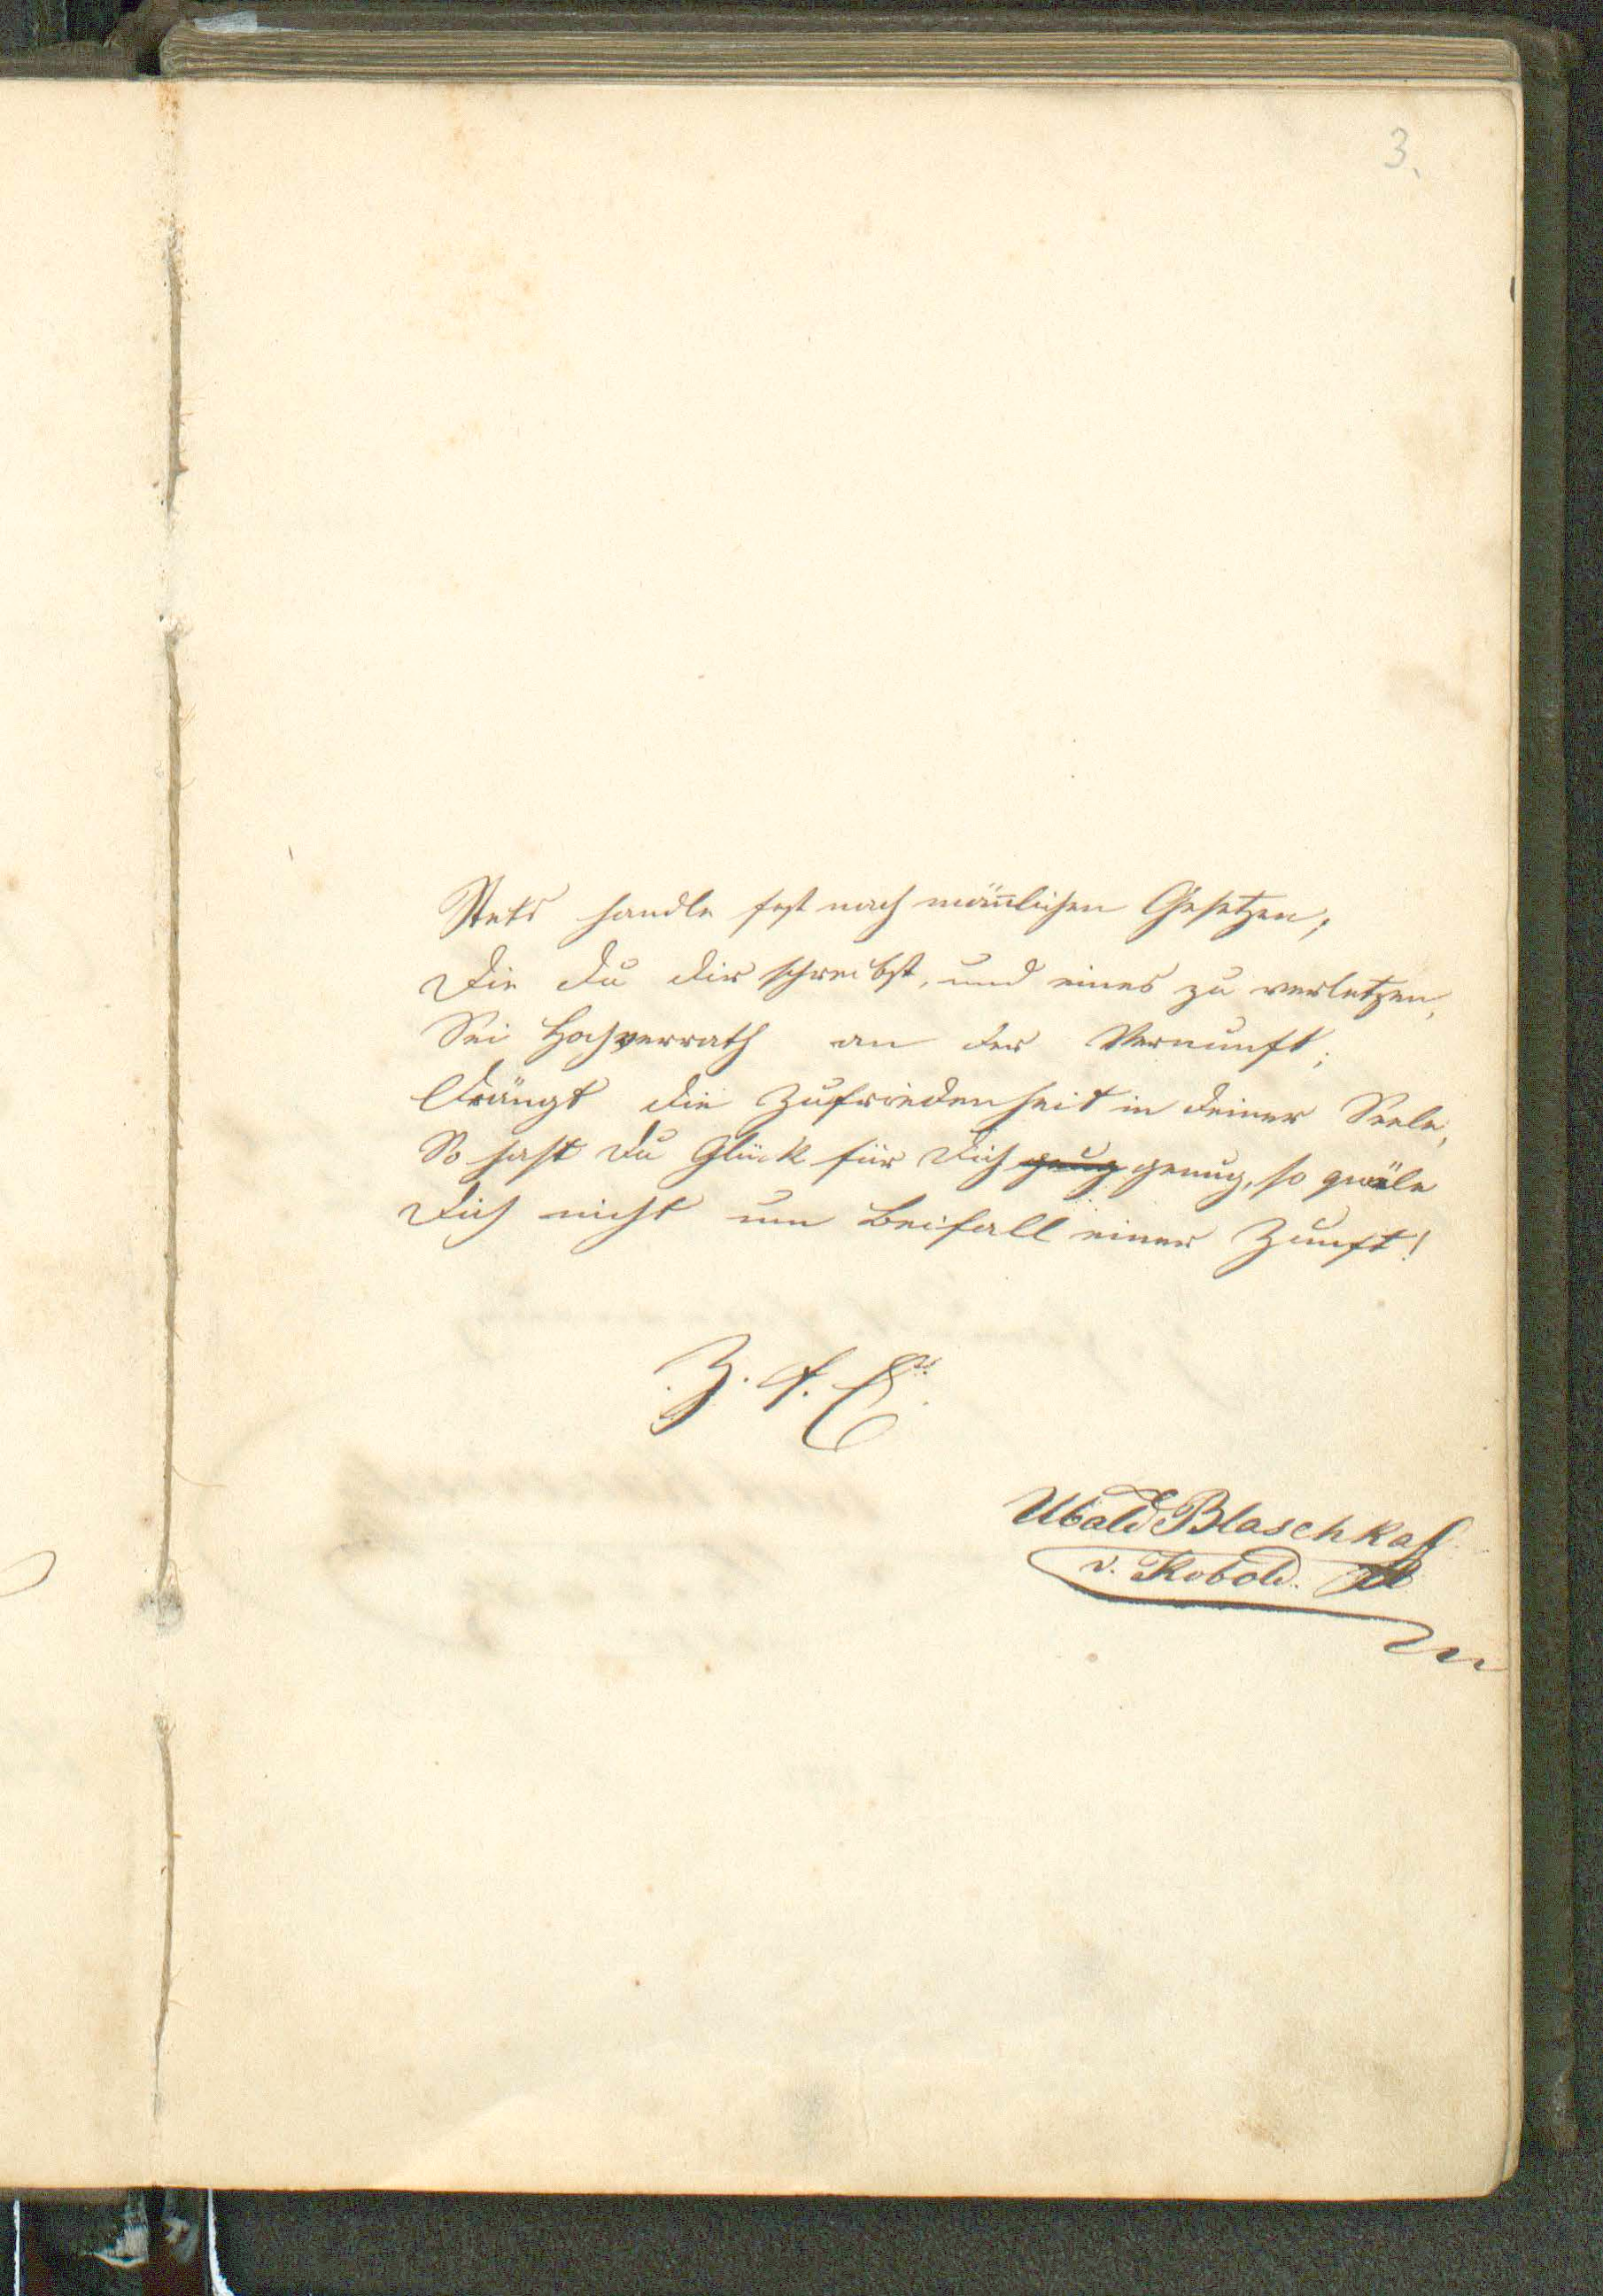 3.
Stets handle fest nach mäñlichen Gesetzen;
Die du dir schreibst, und eines zu verletzen,
Sei Hochverrath an der Vernunft;
Drängt die Zufriedenheit in deiner Seele,
So hast du Glück für dich genug, so quäle
Dich nicht um Beifall einer Zunft!
Z. f. E.
Ubald Blaschka
v. Kobold.